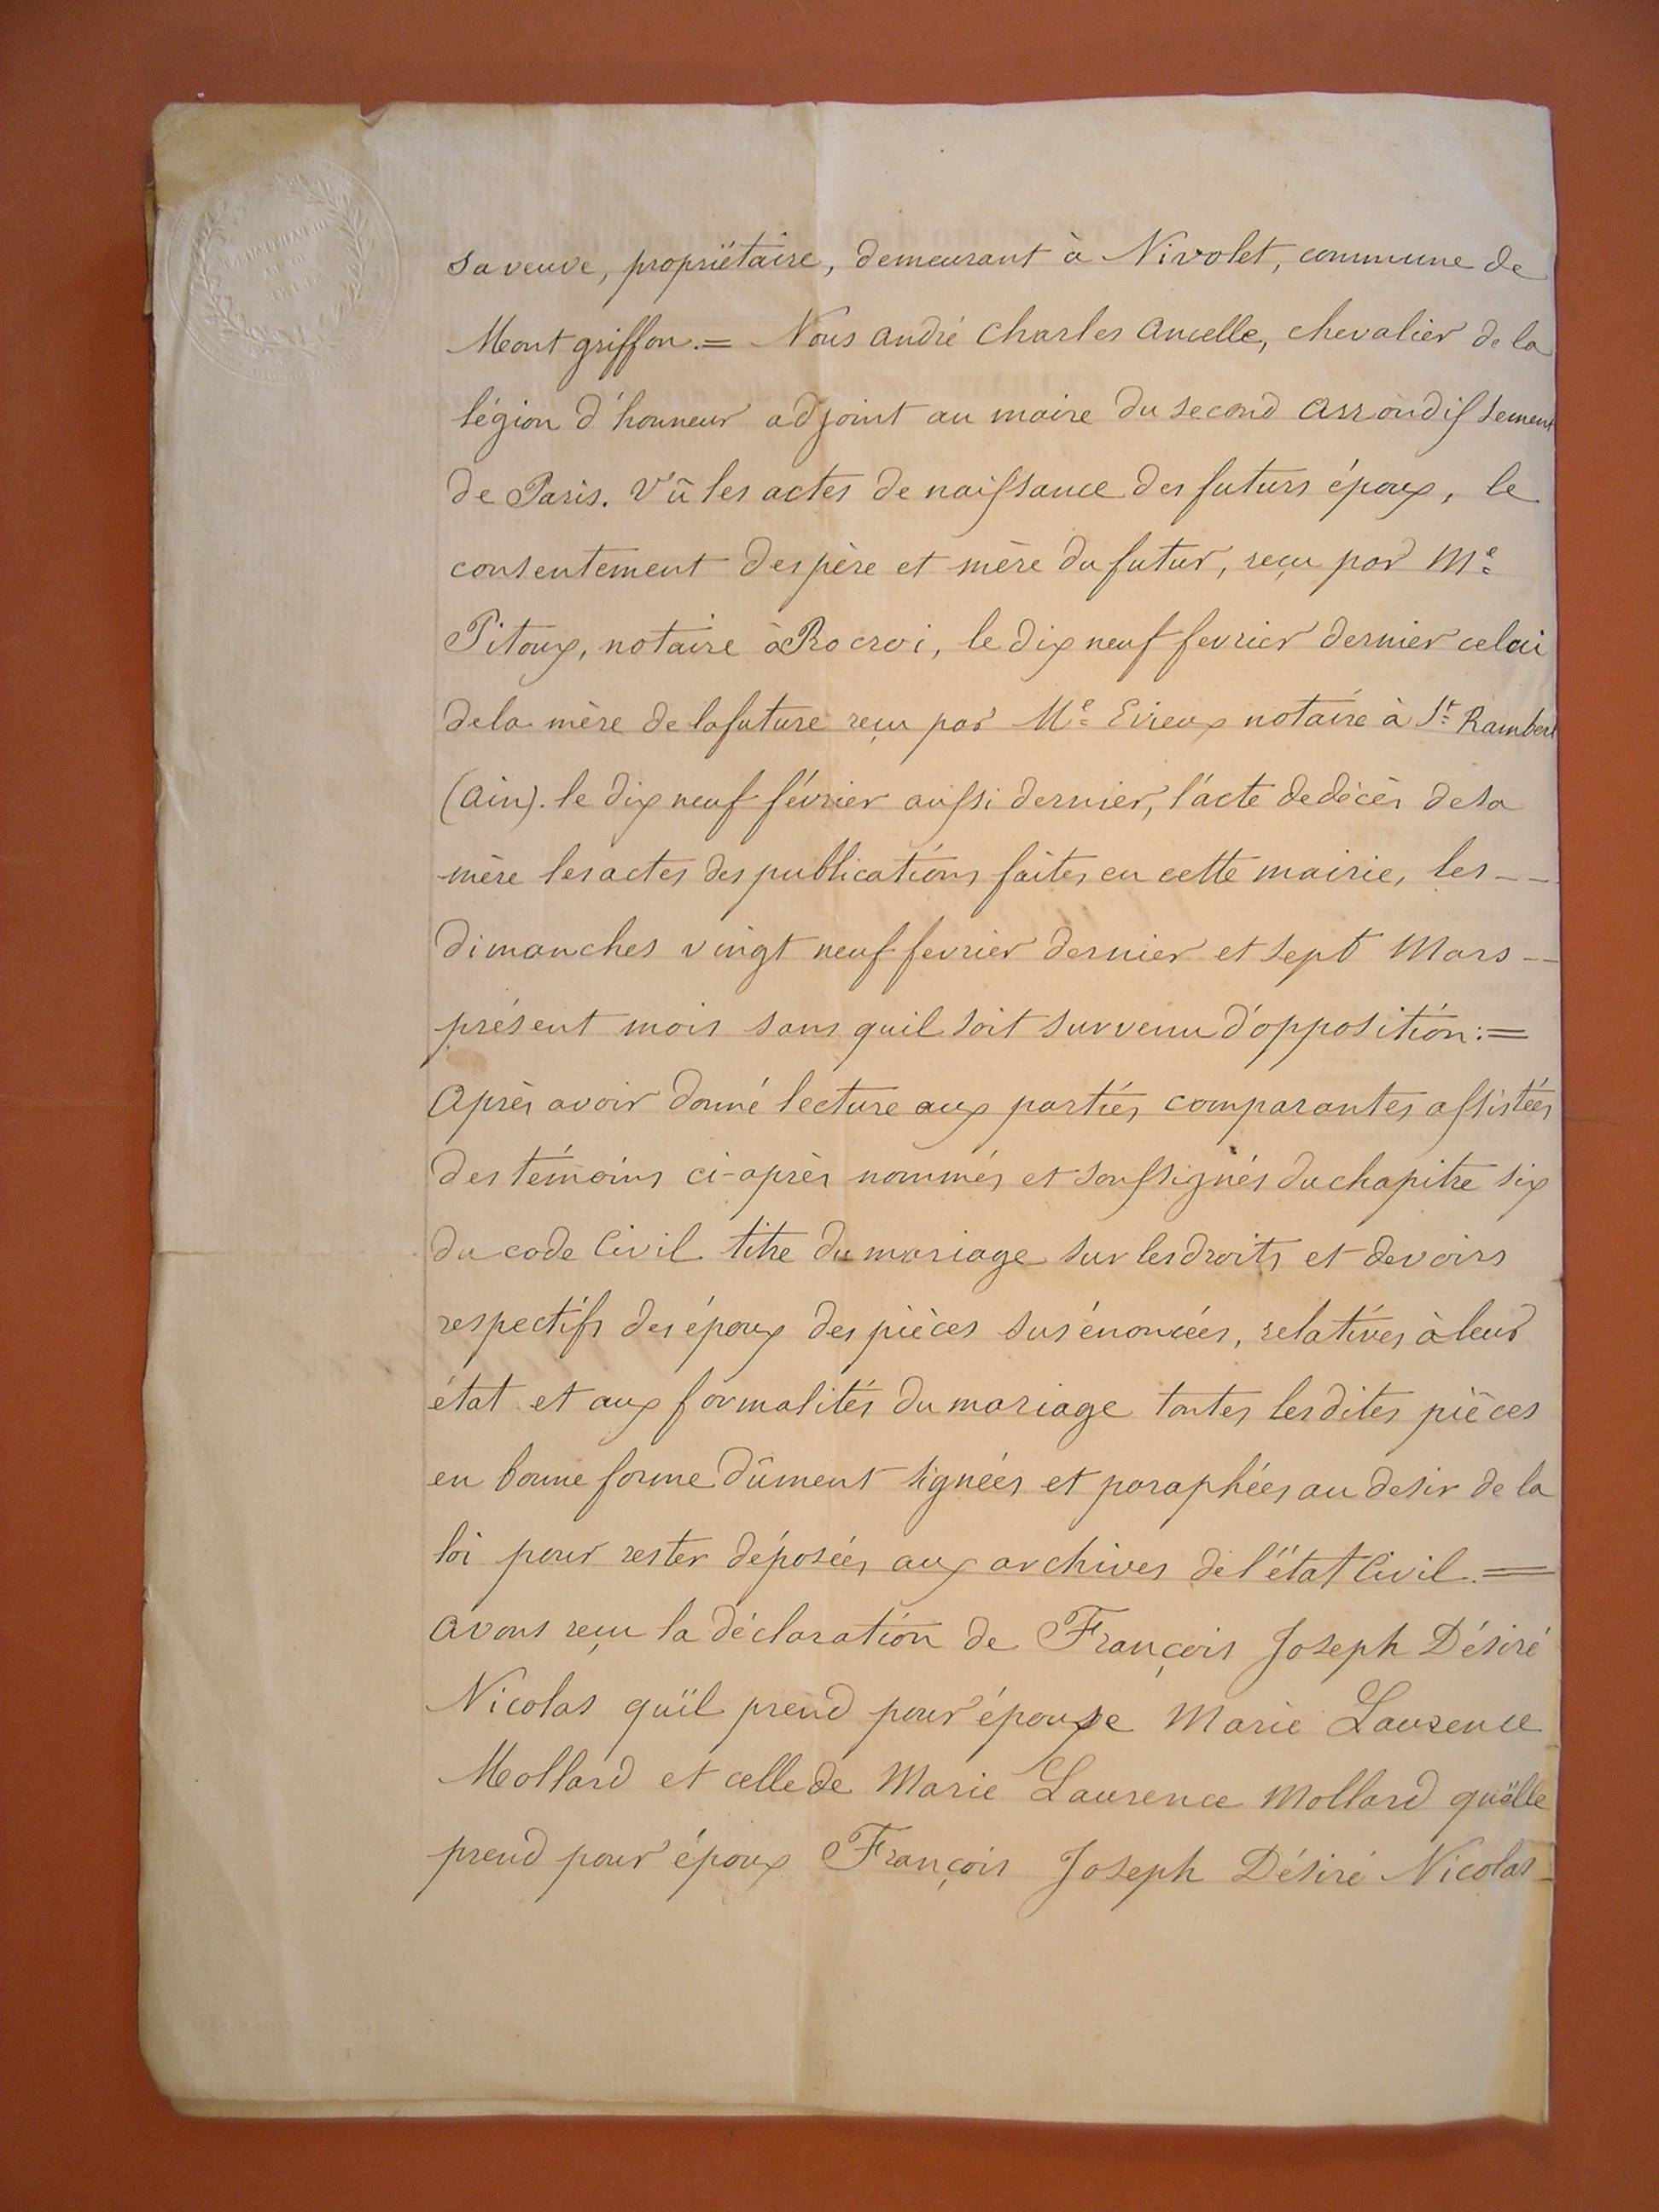 sa veuve, propriëtaire, demeurant à Nivolet, commune de
Montgriffon.= Nous andré Charles Ancelle, chevalier de la
légion d'honneur adjoint au maire du second arrondissement
de Paris. Vû les actes de naissance des futurs époux, le
consentement des père et mère du futur, reçu par Me
Pitoux, notaire à Rocroi, le dix neuf fevrier dernier celui
de la mère de la future reçu par Me Evieux notaire à St Rambert
(ain). le dix neuf février aussi dernier, l'acte de décès de sa
mère les actes des publications faites en cette mairie, les --
dimanches vingt neuf fevrier dernier et sept Mars --
présent mois sans quil soit survenu d'opposition:=
Après avoir donné lecture aux parties comparantes assistées
des témoins ci-après nommés et soussignés du chapitre six
du code Civil titre du mariage sur les droits et devoirs
respectifs des époux des pièces sus énoncées, relatives à leur
état et aux formalités du mariage toutes les dites pièces
en bonne forme dûment signées et paraphées au desir de la
loi pour rester déposées aux archives de l'état Civil.=
avons reçu la déclaration de François Joseph Désiré
Nicolas qu'il prend pour épouse Marie Laurence
Mollard et celle de Marie Laurence Mollard qu'elle
prend pour époux François Joseph Désiré Nicolas